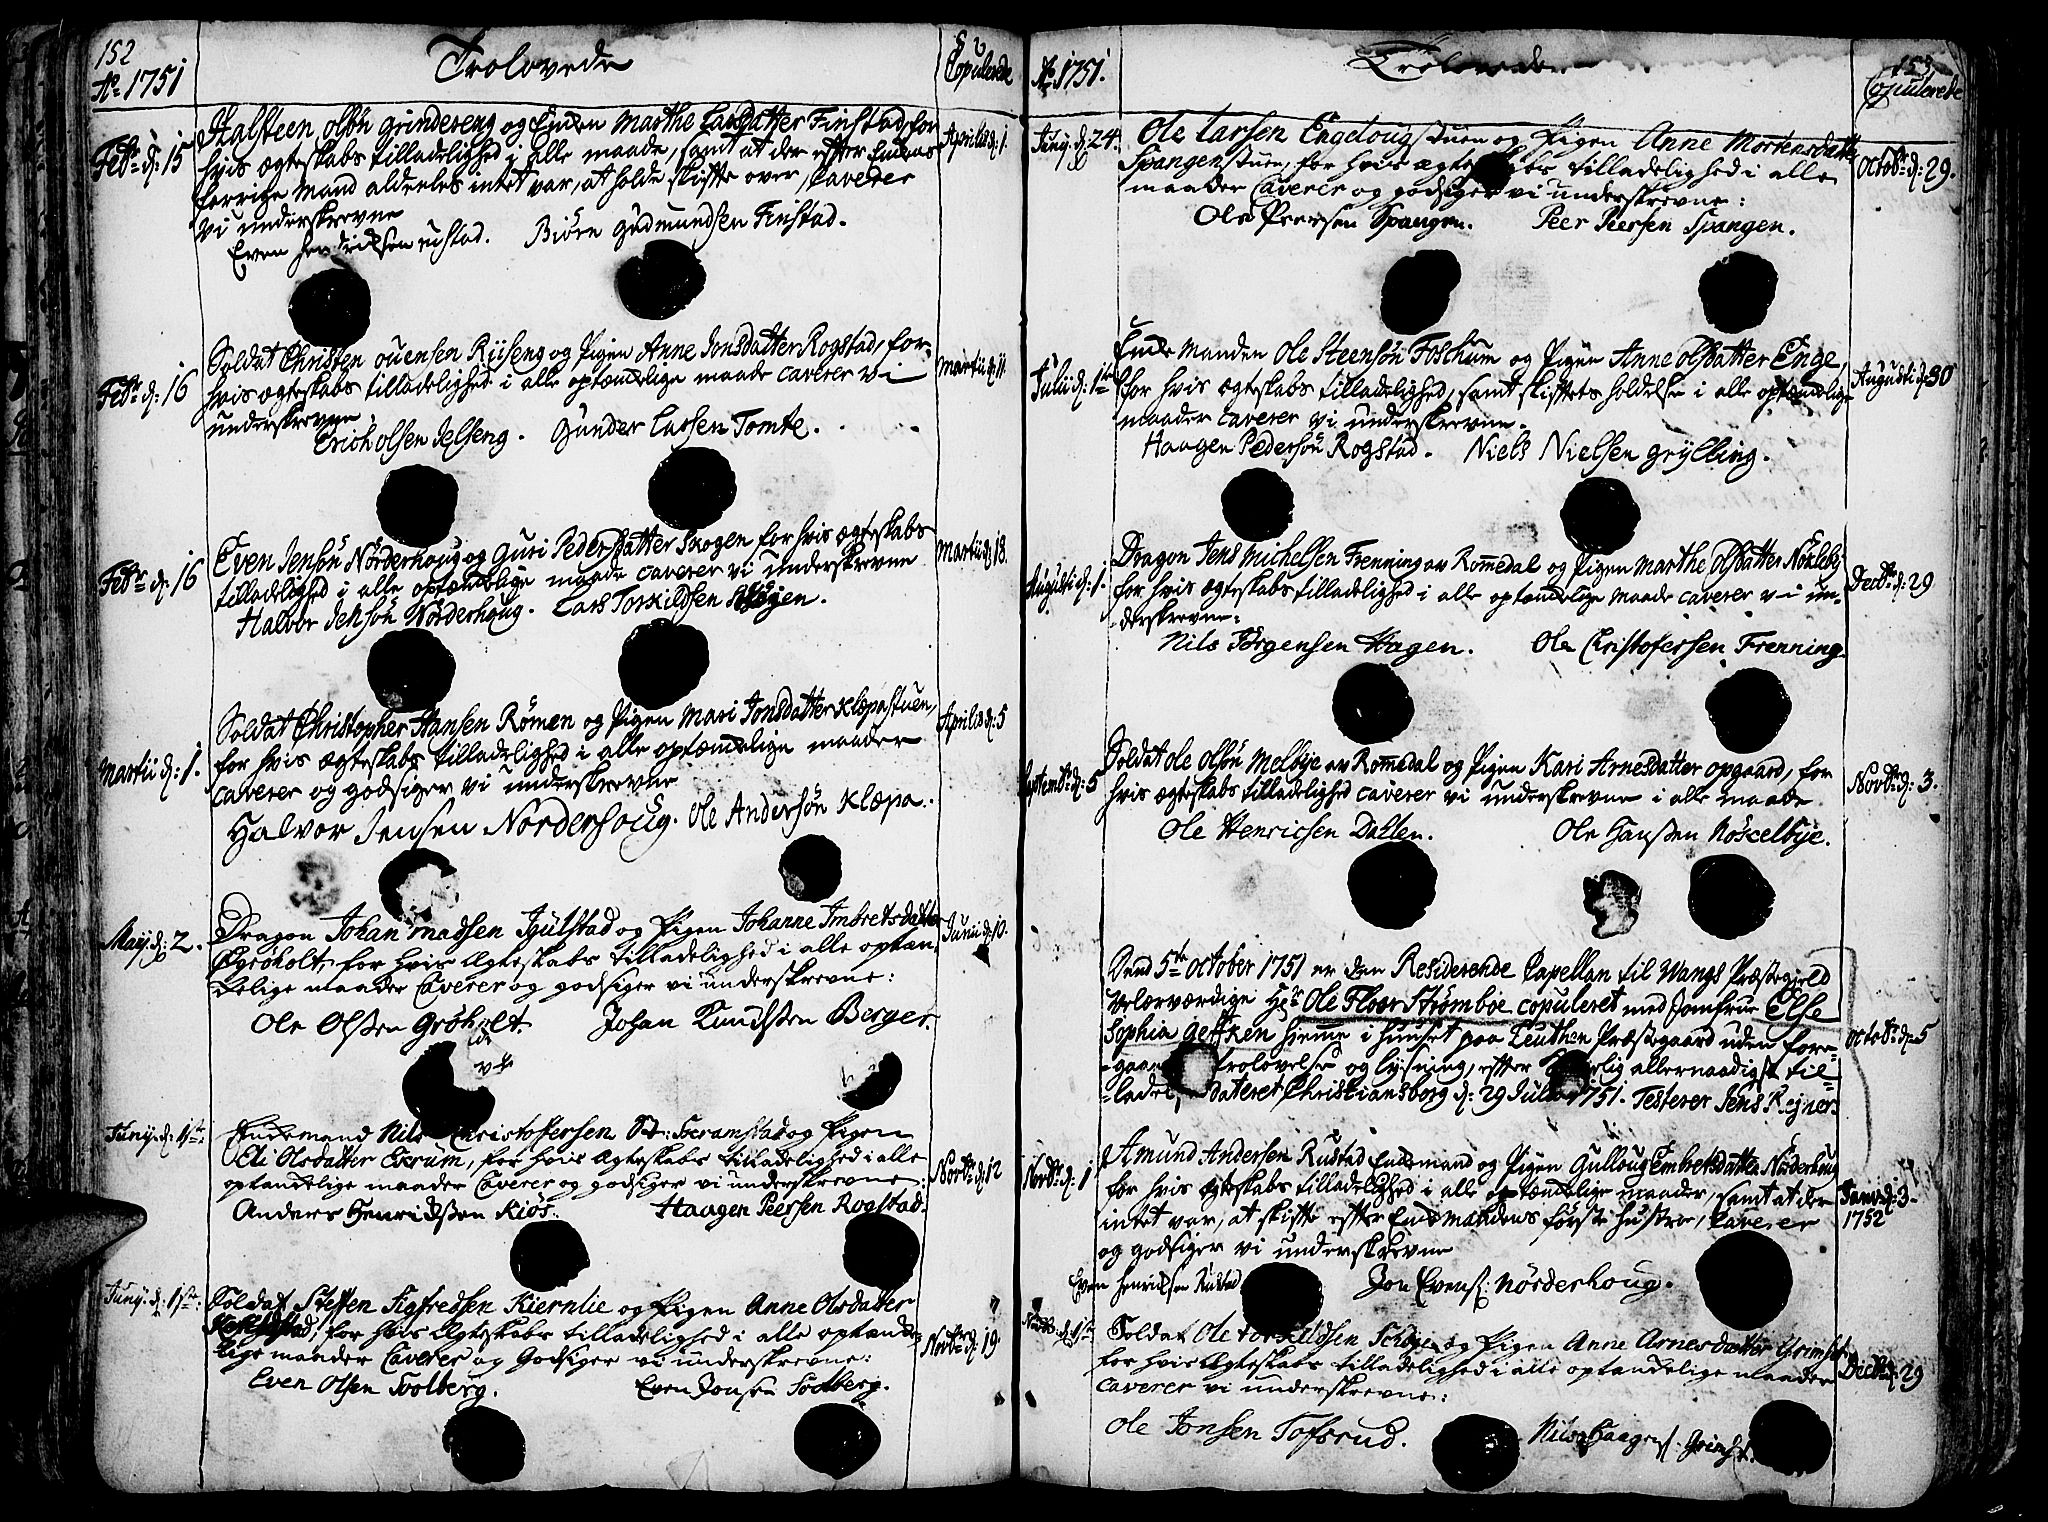 152
Ao 1751
Trolovede
Copulerede
Febr d: 15
Halsteen Olsøn Grindereng og Enken Marthe Larsdatter Finstad, for
hvis ægteskabs tilladelighed i alle maade, samt at der efter Enkens
forrige Mand aldeeles intet var, at holde skifte over, Caverer
vi underskrevne
Even Hendrichsen Rustad. Biørn Gudmundsen Finstad.
Aprilis d: 1.
Febr d: 16
Soldat Christen Ouensen Rüseng og Pigen Anne Jonsdatter Rogstad, for
hvis ægteskabs tilladelighed i alle optænkelige maade caverer vi
underskrevne
Erich Olsen Jelseng. Gunder Larsen Tomte.
Martii d: 11.
Febr d: 16
Even Jensøn Nørderhoug og Guri Pedersdatter Skogen for hvis ægteskabs
tilladelighed i alle optænkelige maade caverer vi underskrevne
Halvor Jensøn Nørderhoug. Lars Torkildsen Skogen.
Martii d: 18.
Martii d: 1.
Soldat Christopher Hansen Rømen og Pigen Mari Jonsdatter Klæpastuen,
for hvis ægteskabs tilladelighed i alle optænkelige maader
caverer og godsiger vi underskrevne
Halvor Jensen Norderhoug. Ole Andersøn Klæpa.
Aprilis d: 5
Maij d: 2.
Dragon Johan Madsen Igulstad og Pigen Johanne Imbretsdatter
Øgrøholt, for hvis Ægteskabs tilladelighed i alle optæn-
kelige maader Caverer og godsiger vi underskrevne:
Ole Olssen Grøholt. Johan Knudssen Berger.
Junii d: 10.
Junij d: 1ste
Enkemand Nils Christofersen og Pigen
Eli Olsdatter Ekrum, for hvis Ægteskabs tilladelighed i alle
optænkelige maader Caverer og godsiger vi underskrevne:
Anders Henrichssen Kiøs. Haagen Peersen Rogstad.
Novbr d: 12
Junij d: 1ste
Soldat Steffen Sigfredsen Kiernlie og Pigen Anne Olsdatter
for hvis Ægteskabs tilladelighed i alle optænke-
lige maader Caverer og Godsiger vi underskrevne:
Even Olsen Solberg. Even Jonsen Solberg.
Novbr d: 19
Ao 1751.
Trolovede
153
Copulerede
Junij d: 24.
Ole Larsen Engelougstuen og Pigen Anne Mortensdatter
Spangenstuen, for hvis ægteskabs tilladelighed i alle
maader Caverer og godsiger vi underskrevne:
Ole Peersen Spangen. Peer Peersen Spangen.
Octobr d: 29.
Julii d: 1ste
Enkemanden Ole Steensøn Foshum og Pigen Anne Olsdatter Enge,
for hvis ægteskabs tilladelighed, samt skiftets holdelse i alle optænkelige
maader caverer vi underskrevne.
Haagen Pedersøn Rogstad. Niels Nielsen Grylling.
Augusti d: 30
Augusti d: 1.
Dragon Jens Michelsen Frenning av Rommedal og Pigen Marthe Olsdatter Nøkleby
for hvis ægteskabs tilladelighed i alle optænkelige maade caverer vi un-
derskrevne:
Nils Jørgensen Hagen. Ole Christofersen Frenning.
Decbr d: 29
Septembr d: 5
Soldat Ole Olsøn Melbye av Rommedal og Pigen Kari Arnesdatter Opgaard, for
hvis ægteskabs tilladelighed caverer vi underskrevne i alle maade
Ole Henricsen Dahlen. Ole Hanssen Nøkelbye.
Novbr d: 3.
Dend 5te October 1751 er den Residerende Capellan til Wangs Præstegield
Velærværdige Hr Ole Floer Strømboe copuleret med Jomfrue Else
Sophia Geffken hiemme i huuset paa Leuthen Præstegaard uden fore-
gaaende trolovelse og lysning, efter allernaadigst til-
ladelse, dateret Christiansborg d: 29 Julii 1751. Testerer Jens Rejner.
Octobr d: 5
Novbr d: 1
Amund Andersen Rustad Enkemand og Pigen Gulloug Embretsdatter Nørderhoug
for hvis ægteskabs tilladelighed i alle optænkelige maader, samt at der
intet var, at skifte efter Enkemandens første hustroe, Caverer
og godsiger vi underskrevne
Even Henrichsen Rustad Jon Evens: Nørderhoug.
Januarii d: 3
1752
Novbr d: 1ste
Soldat Ole Torkildsen Schoje og Pigen Anne Arnesdatter Grimset
for hvis Ægteskabs tilladelighed i alle optænkelige maader
caverer vi underskrevne:
Ole Jonsen Tofsrud. Nils Haagens:
Decbr d: 29